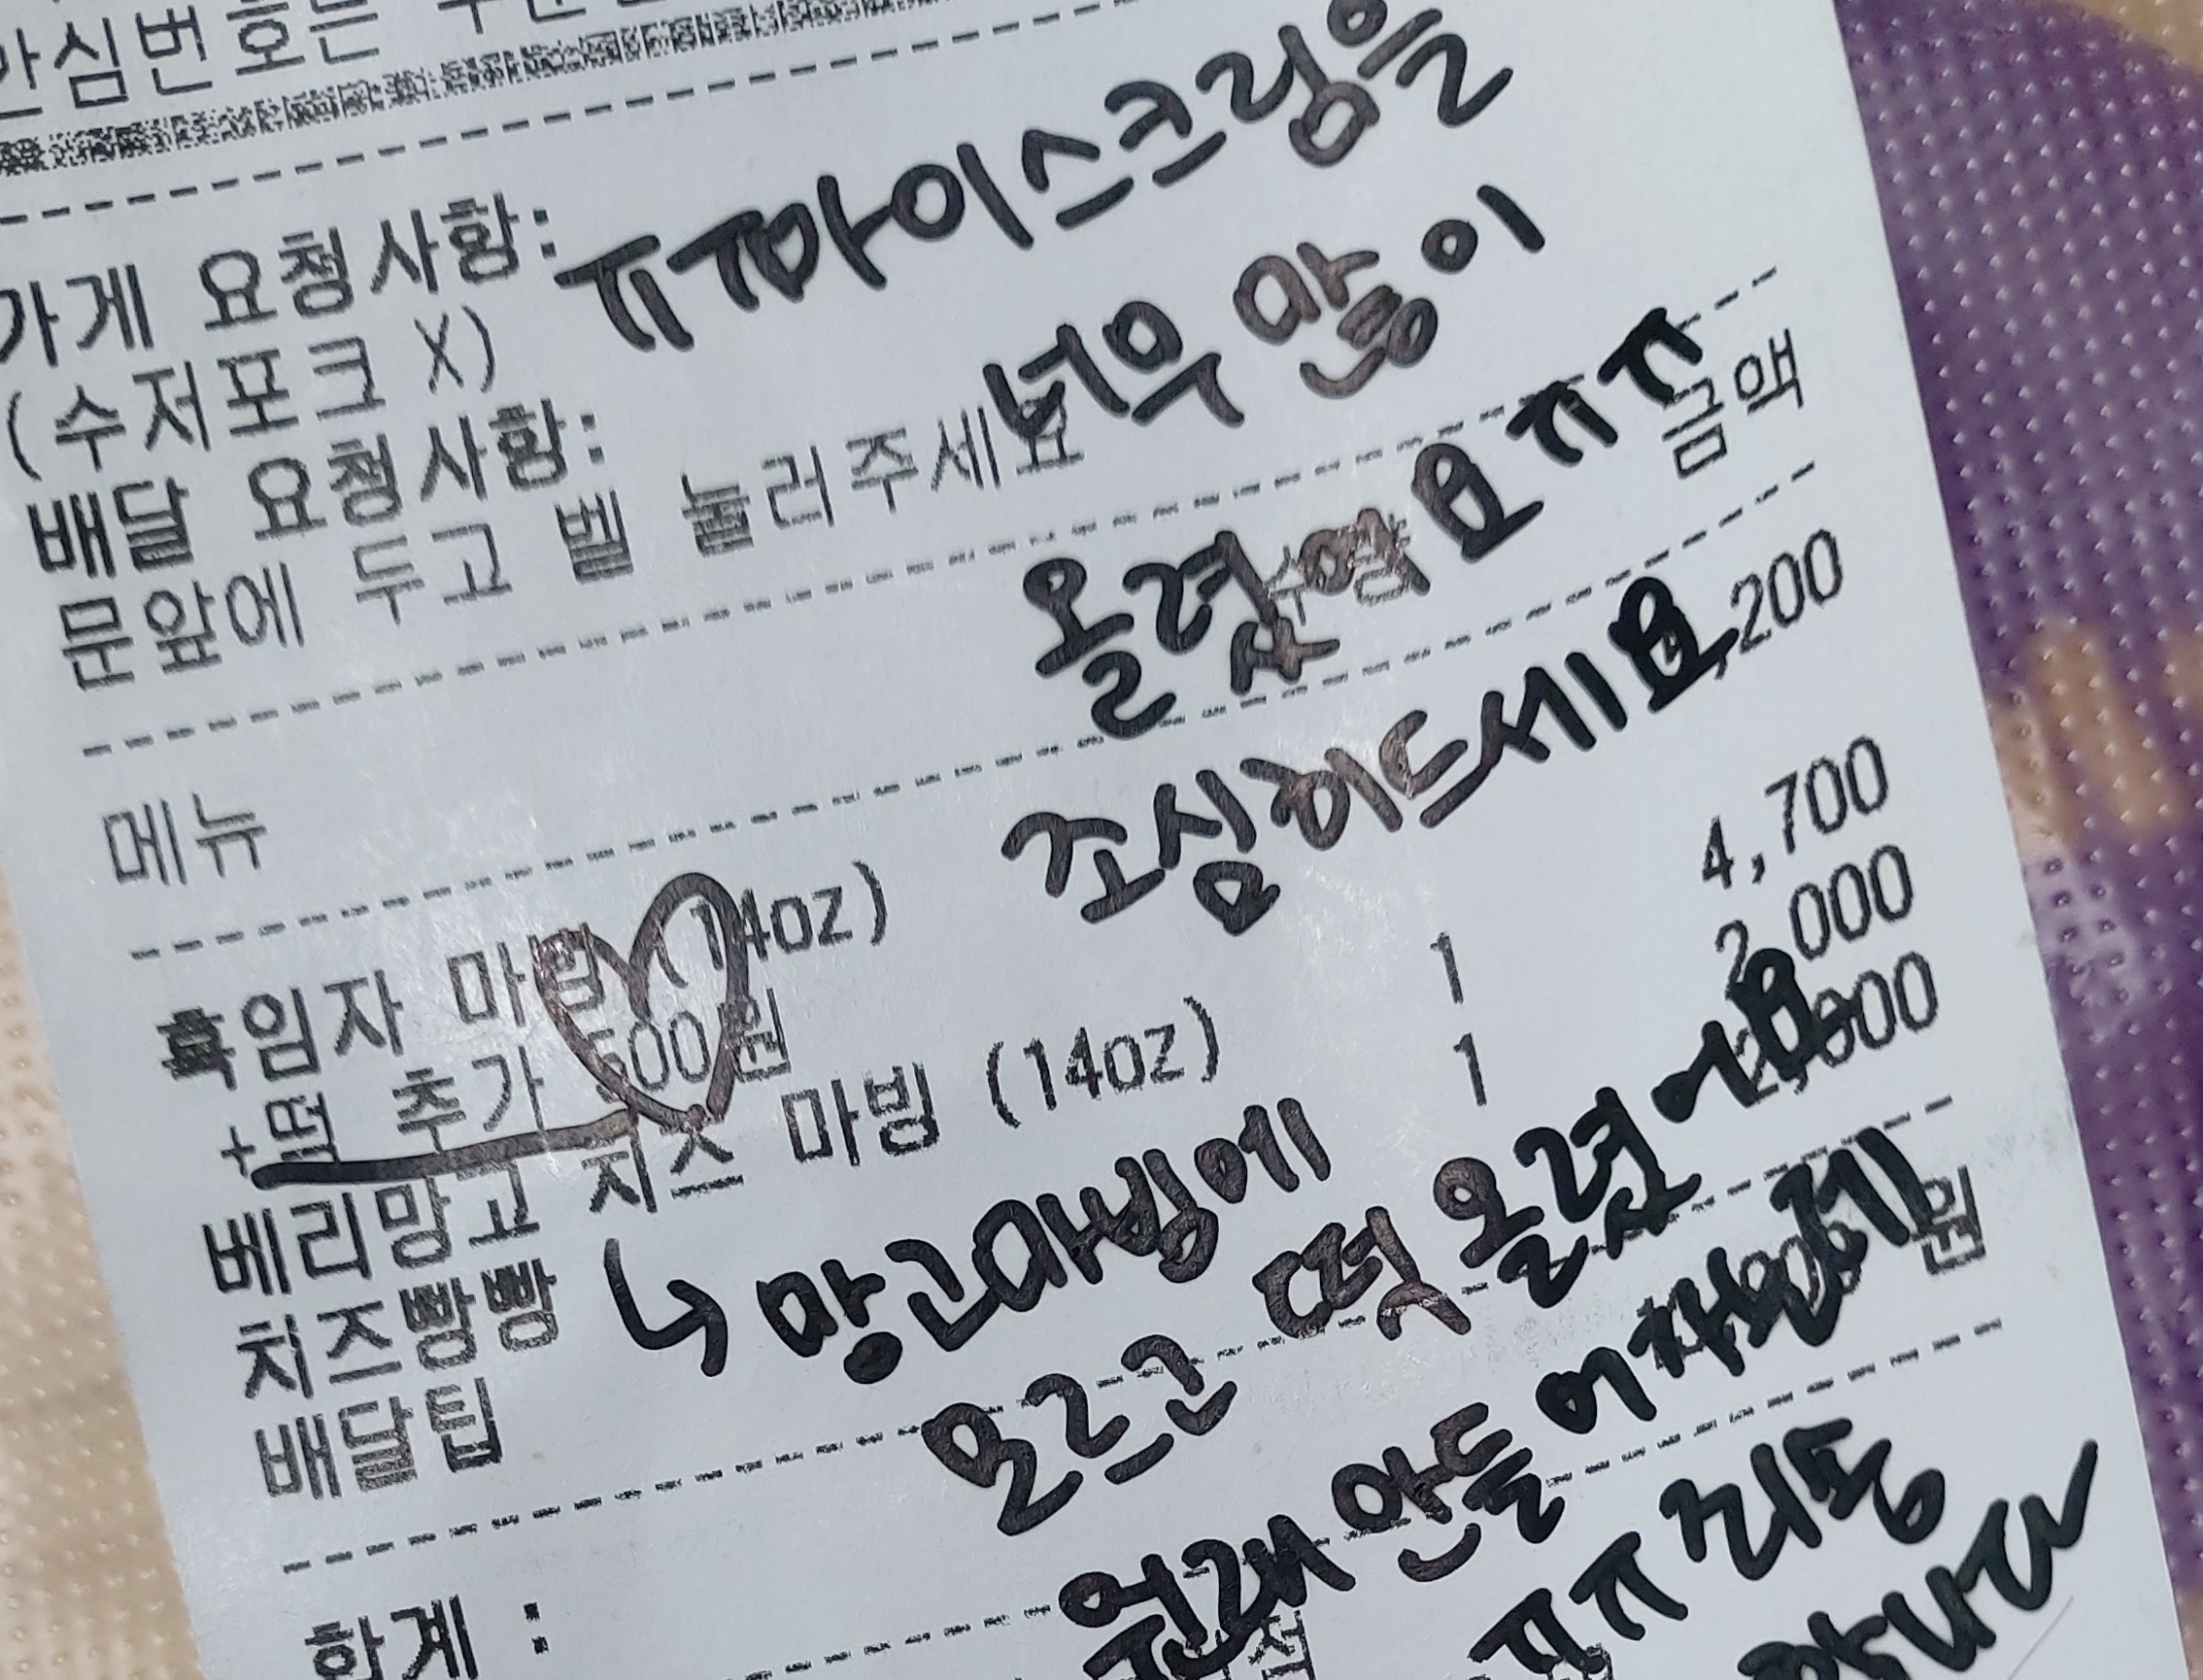 안심번호는
ㅠㅠ아이스크림을
가게 요청사항:
(수저포크 X)
너무 많이
배달 요청사항:
문앞에 두고 벨 눌러주세요
올렸어요ㅠㅠ
메뉴 수량 금액
조심히드세요
흑임자 마빙 (14oz) ,200
+떡 추가 500원
베리망고 치즈 마빙 (14oz) 1 4,700
치즈빵빵 1 2,000
배달팁 2,000
↳ 망고마빙에
모르고 떡 올렸어요
원래 안돌어가는데
ㅠㅠ
합계 : 원